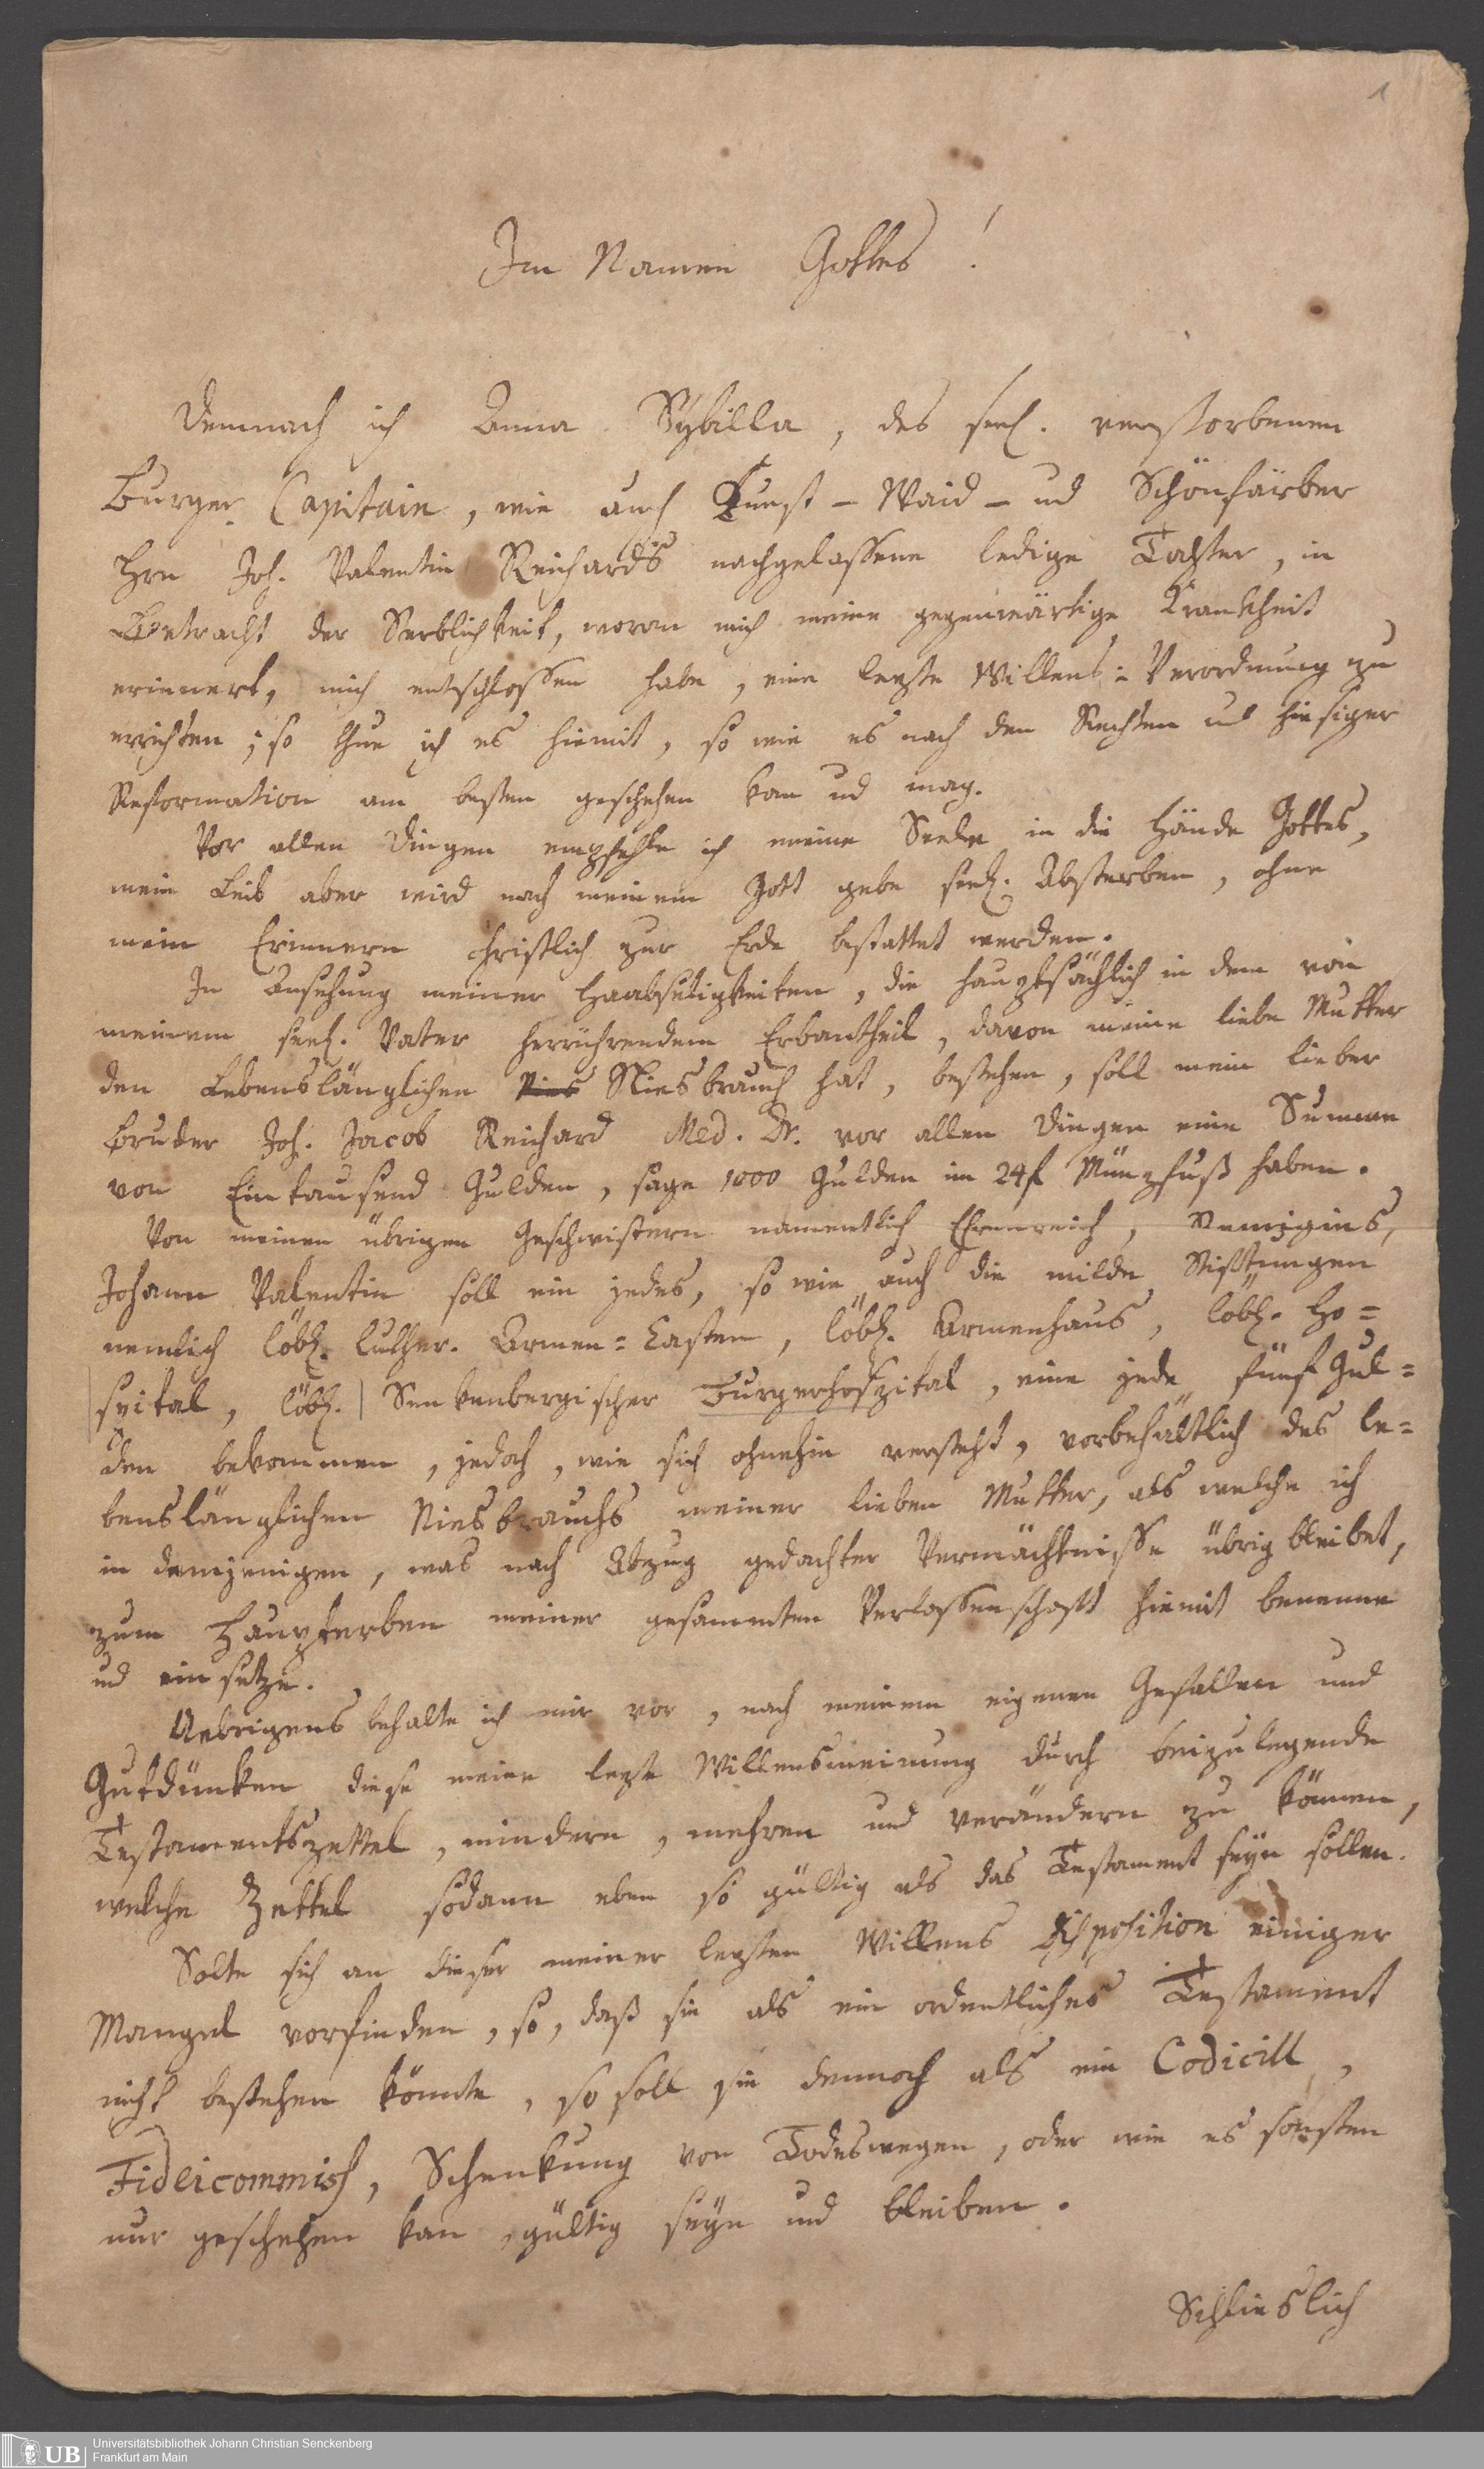 1
Im Namen Gottes!
Demnach ich Anna Sybilla, des seel. verstorbenen
Burger Capitain, wie auch Kunst- Waid- und Schönfärber
Hrn Joh. Valentin Reichards nachgelassene ledige Tochter, in
Betracht der Serblichkeit, woran mich meine gegenwärtige Krankheit
erinnert, mich entschlossen habe, eine lezte Willens-Verordnung zu
errichten; so thue ich es hiemit, so wie es nach den Rechten und hiesiger
Reformation am besten geschehen kan und mag.
Vor allen Dingen empfehle ich meine Seele in die Hände Gottes,
mein Leib aber wird nach meinem Gott gebe seel. Absterben, ohne
mein Erinnern christlich zur Erde bestattet werden.
In Ansehung meiner Haabseligkeiten, die hauptsächlich in dem von
meinem seel. Vater herrührendem Erbantheil, davon meine liebe Mutter
den Lebenslänglichen Nies Niesbrauch hat, bestehen, soll mein lieber
Bruder Joh. Jacob Reichard Med. Dr. vor allen Dingen eine Summe
von Eintausend Gulden, sage 1000 Gulden im 24f Münzfuß haben.
Von meinen übrigen Geschwistern namentlich Ehrenreich, Remigius,
Johann Valentin soll ein jedes, so wie auch die milde Stiftungen
nemlich löbl. Luther. Armen-Casten, löbl. Armenhaus, löbl. Ho=
spital, löbl. Senkenbergischer Burgerhospital, eine jede fünf Gul=
den bekommen, jedoch, wie sich ohnehin versteht, vorbehältlich des le=
benslänglichen Niesbrauchs meiner lieben Mutter, als welche ich
in demjenigen, was nach Abzug gedachter Vermächtnisse übrig bleibet,
zum Haupterben meiner gesammten Verlassenschaft hiemit benenne
und einsetze.
Uebrigens behalte ich mir vor, nach meinem eigenen Gefallen und
Gutdünken diese meine lezte Willensmeinung durch beizulegende
Testamentszettel, mindern, mehren und verändern zu können,
welche Zettel sodann eben so gültig als das Testament seyn sollen.
Solte sich an dieser meiner lezten Willens Disposition einiger
Mangel vorfinden, so, daß sie als ein ordentliches Testament
nicht bestehen könnte, so soll sie dennoch als ein Codicill,
Fideicommiss, Schenkung von Todeswegen, oder wie es sonsten
nur geschehen kan, gültig seyn und bleiben.
Schlieslich
UB Universitätsbibliothek Johann Christian Senckenberg
Frankfurt am Main